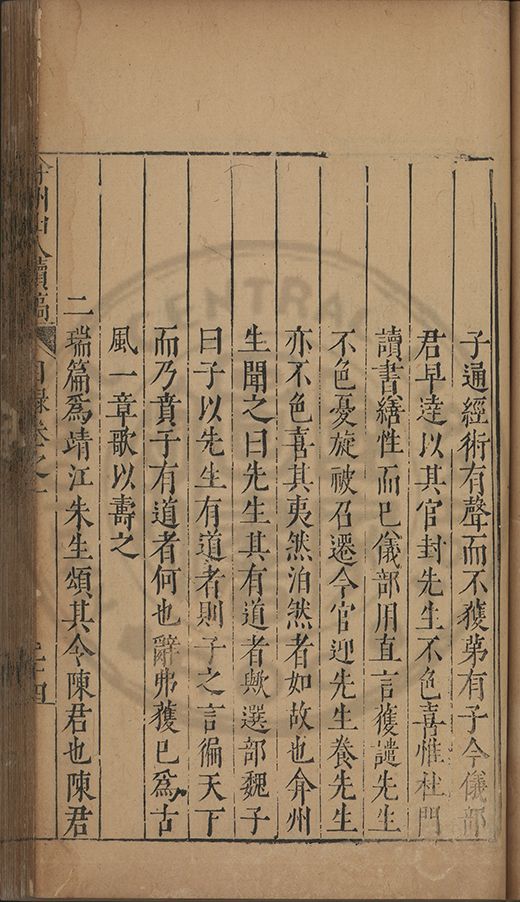 子通經術有聲而不獲苐有子今儀部
君早達以其官封先生不色喜惟杜門
讀書繕性而巳儀部用直言獲譴先生
不色憂旋被召遷今官迎先生養先生
亦不色喜其夷然泊然者如故也弇州
生聞之曰先生其有道者歟選部魏子
曰子以先生有道者則子之言徧天下
而乃賁子有道者何也辭弗獲巳爲古
風一章歌以壽之
二瑞篇爲靖江朱生頌其令陳君也陳君
弇州山人續稿
目錄卷之一
CENTRAL